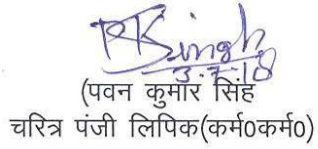 RKSingh
3.7.18
(पवन कुमार सिंह
चरित्र पंजी लिपिक(कर्म0कर्म0)